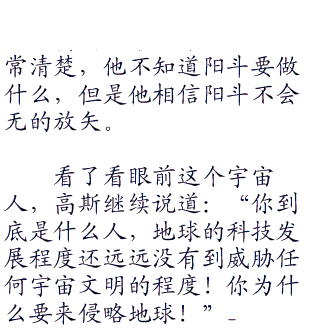 常清楚，他不知道阳斗要做
什么，但是他相信阳斗不会
无的放矢。
看了看眼前这个宇宙
人，高斯继续说道：“你到
底是什么人，地球的科技发
展程度还远远没有到威胁任
何宇宙文明的程度！你为什
么要来侵略地球！”